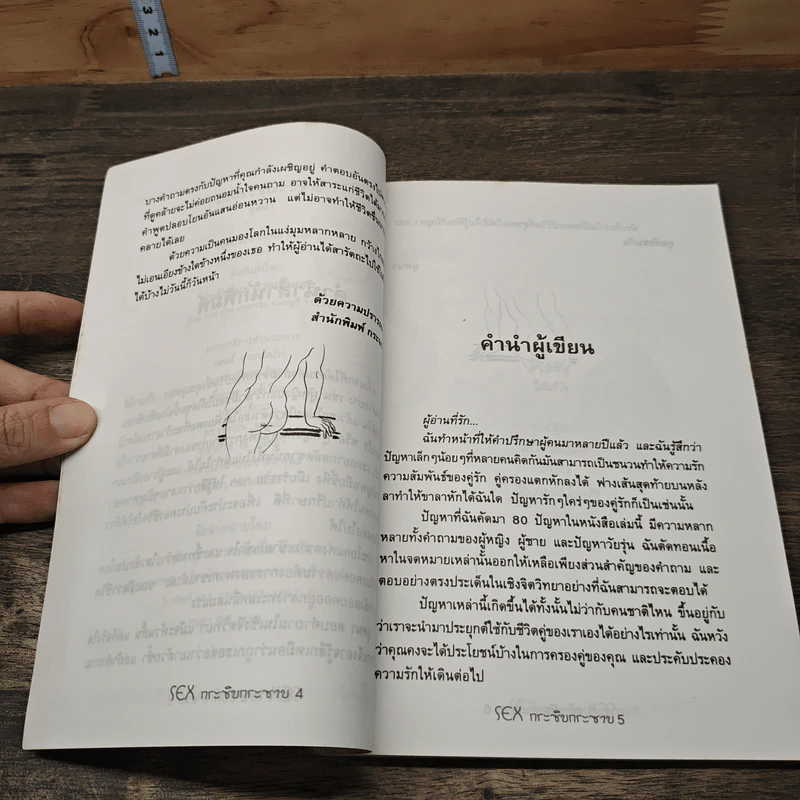 3
2
1
บางคำถามตรงกับปัญหาที่คุณกำลังเผชิญอยู่ คำตอบอันตรง
ที่ดูคล้ายจะไม่ค่อยถนอมน้ำใจคนถาม อาจให้สาระแก่ชีวิตได้
คำพูดปลอบโยนอันแสนอ่อนหวาน แต่ไม่อาจทำให้ชีวิต
คลายได้เลย
ด้วยความเป็นคนมองโลกในแง่มุมหลากหลาย กว้าง
ไม่เอนเอียงข้างใดข้างหนึ่งของเธอ ทำให้ผู้อ่านได้สารัตถะไปใช้
ได้บ้างไม่วันนี้ก็วันหน้า
ด้วยความ
สำนักพิมพ์
SEX กระซิบกระซาบ 4
คำนำผู้เขียน
ผู้อ่านที่รัก...
ฉันทำหน้าที่ให้คำปรึกษาผู้คนมาหลายปีแล้ว และฉันรู้สึกว่า
ปัญหาเล็กๆน้อยๆที่หลายคนคิดกันมันสามารถเป็นชนวนทำให้ความรัก
ความสัมพันธ์ของคู่รัก คู่ครองแตกหักลงได้ ฟางเส้นสุดท้ายบนหลัง
ลาทำให้ขาลาหักได้ฉันใด ปัญหารักๆใคร่ๆของคู่รักก็เป็นเช่นนั้น
ปัญหาที่ฉันคัดมา 80 ปัญหาในหนังสือเล่มนี้ มีความหลาก
หลายทั้งคำถามของผู้หญิง ผู้ชาย และปัญหาวัยรุ่น ฉันตัดทอนเนื้อ
หาในจดหมายเหล่านั้นออกให้เหลือเพียงส่วนสำคัญของคำถาม และ
ตอบอย่างตรงประเด็นในเชิงจิตวิทยาอย่างที่ฉันสามารถจะตอบได้
ปัญหาเหล่านี้เกิดขึ้นได้ทั้งนั้นไม่ว่ากับคนชาติไหน ขึ้นอยู่กับ
ว่าเราจะนำมาประยุกต์ใช้กับชีวิตคู่ของเราเองได้อย่างไรเท่านั้น ฉันหวัง
ว่าคุณคงจะได้ประโยชน์บ้างในการครองคู่ของคุณ และประคับประคอง
ความรักให้เดินต่อไป
SEX กระซิบกระซาบ 5